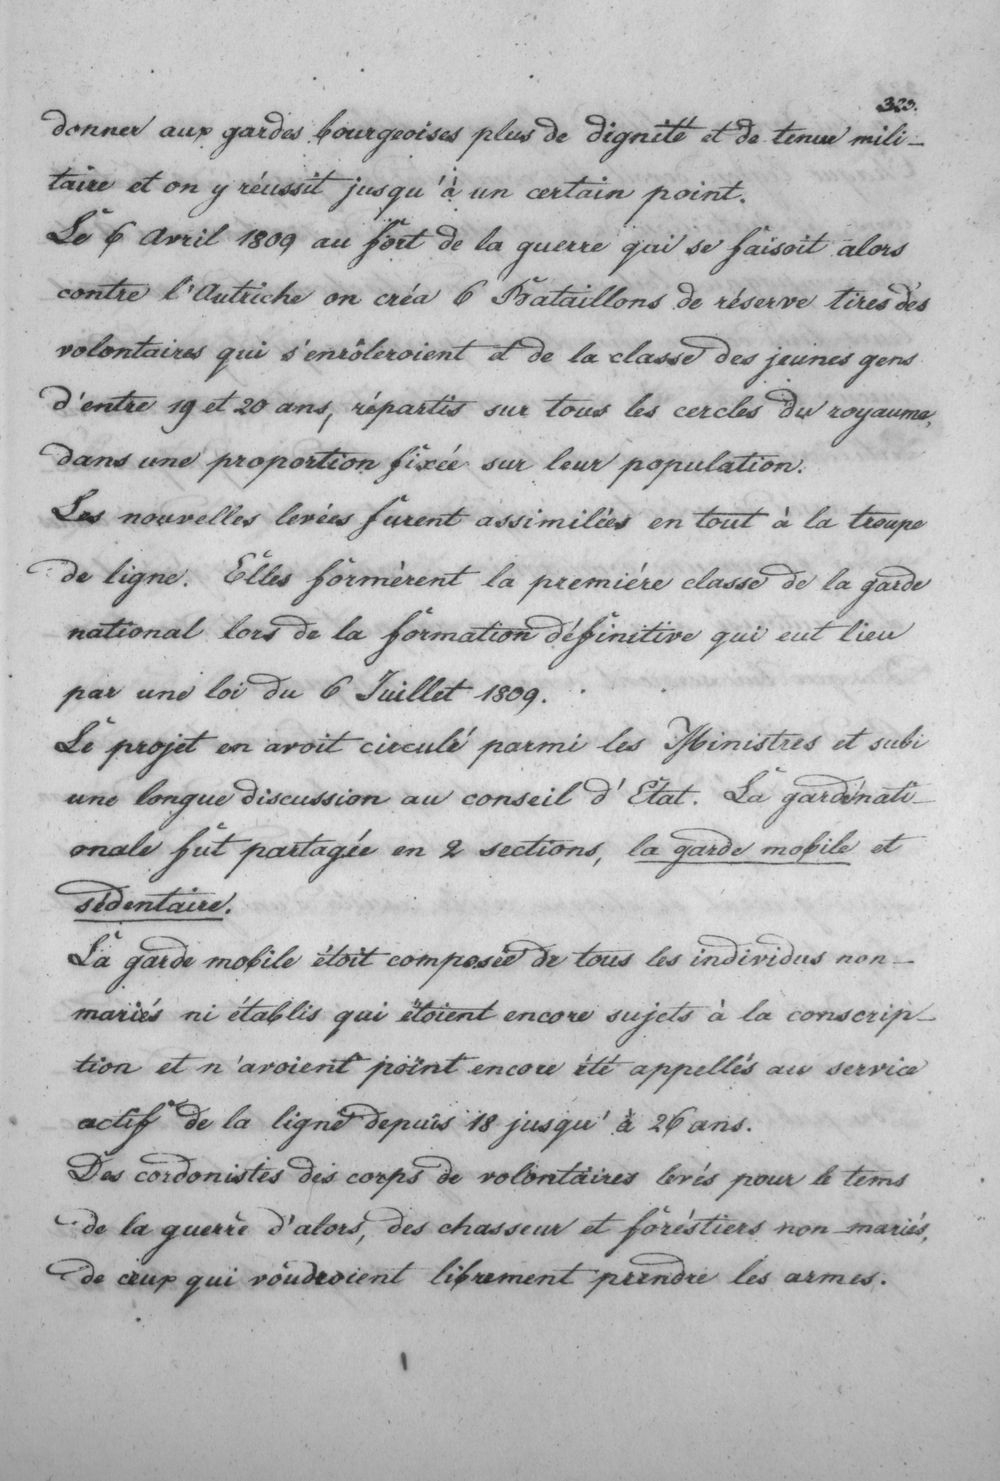 323.
donner aux gardes bourgeoises plus de dignité et de tenue mili-
taire et on y réussit jusqu'à un certain point.
Le 6 Avril 1809 au fort de la guerre qui se faisoit alors
contre l'Autriche on créa 6 Bataillons de réserve tires des
volontaires qui s'enrôleroient et de la classe des jeunes gens
d'entre 19 et 20 ans, répartis sur tous les cercles du royaume,
dans une proportion fixée sur leur population.
Les nouvelles levées furent assimilées en tout à la troupe
de ligne. Elles formèrent la premiére classe de la garde
national lors de la formation définitive qui eut lieu
par une loi du 6 Juillet 1809.
Le projet en avoit circulé parmi les Ministres et subi
une longue discussion au conseil d'Etat. La garde nati-
onale fut partagée en 2 sections, la garde mobile et
sédentaire.
La garde mobile étoit composée de tous les individus non-
mariés ni établis qui étoient encore sujets à la conscrip-
tion et n'avoient point encore été appellés au service
actif de la ligne depuis 18 jusqu'à 26 ans.
Des cordonistes des corps de volontaires levés pour le tems
de la guerre d'alors, des chasseur et foréstiers non-mariés,
de ceux qui voudroient librement prendre les armes.